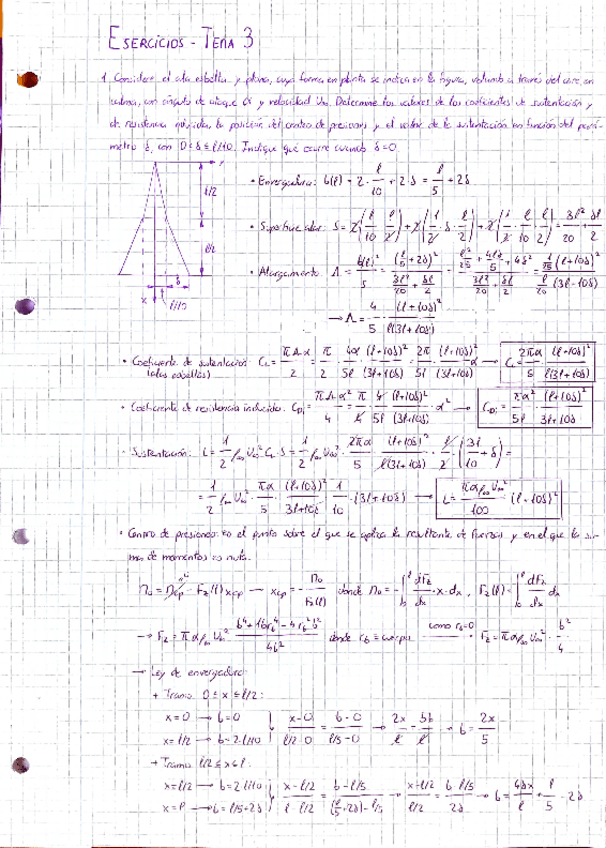 EJERCICIOS - TEMA 3
1. Considere el ala esbelta y plana, cuya forma en planta se indica en la figura, volando a través del aire, en
calma, con ángulo de ataque α y velocidad U∞. Determine los valores de los coeficientes de sustentación y
de resistencia inducida, la posición del centro de presiones y el valor de la sustentación en función del pará-
metro δ, con 0 < δ ≤ l/10. Indique qué ocurre cuando δ=0.
y
l/2
l/2
δ
x
l/10
• Envergadura: b(l) = 2· l/10 + 2·δ = l/5 + 2δ
• Superficie alar: S =
= 3l²/20 + δl/2
• Alargamiento Λ = b(l)²/S = (l/5+2δ)² / (3l²/20 + δl/2) =
→ Λ = 4/5 · (l+10δ)² / l(3l+10δ)
• Coeficiente de sustentación (alas esbeltas) C_L = πΛα/2 = π/2 · 4α/5l · (l+10δ)²/(3l+10δ) = 2π/5l · (l+10δ)²/(3l+10δ) α → C_L = 2πα/5 · (l+10δ)²/l(3l+10δ)
• Coeficiente de resistencia inducida: C_Di = πΛα²/4 = π/4 · 4/5l · (l+10δ)²/(3l+10δ) · α² → C_Di = πα²/5l · (l+10δ)²/3l+10δ
• Sustentación: L = 1/2 ρ∞ U∞² C_L · S = 1/2 ρ∞ U∞² · 2πα/5 · (l+10δ)²/l(3l+10δ) · l/2 · (3l/10 + δ) =
= 1/2 ρ∞ U∞² · πα/5 · (l+10δ)²/3l+10δ · 1/10 · (3l+10δ) → L = παρ∞U∞²/100 · (l+10δ)²
• Centro de presiones: es el punto sobre el que se aplica la resultante de fuerzas y en el que la su-
ma de momentos es nula.
M₀ = M_cp - F_z(l) x_cp → x_cp = - M₀/F_z(l) donde M₀ = -∫₀ˡ dF_z/dx · x · dx, F_z(l) = ∫₀ˡ dF_z/dx dx
→ F_z = π α ρ∞ U∞² · b⁴+16r_b⁴-4r_b²b²/4b² donde r_b ≡ cuerpo como r_b=0 → F_z = π α ρ∞ U∞² · b²/4
→ Ley de envergadura:
+ Tramo 0 ≤ x ≤ l/2:
x=0 → b=0
x= l/2 → b=2·l/10 } x-0/l/2-0 = b-0/l/5-0 → 2x/l = 5b/l → b = 2x/5
+ Tramo l/2 ≤ x ≤ l:
x=l/2 → b=2·l/10
x= l → b= l/5+2δ } x-l/2/l-l/2 = b-l/5/(l/5+2δ)-l/5 → x-l/2/l/2 = b-l/5/2δ → b = 4δx/l + l/5 - 2δ